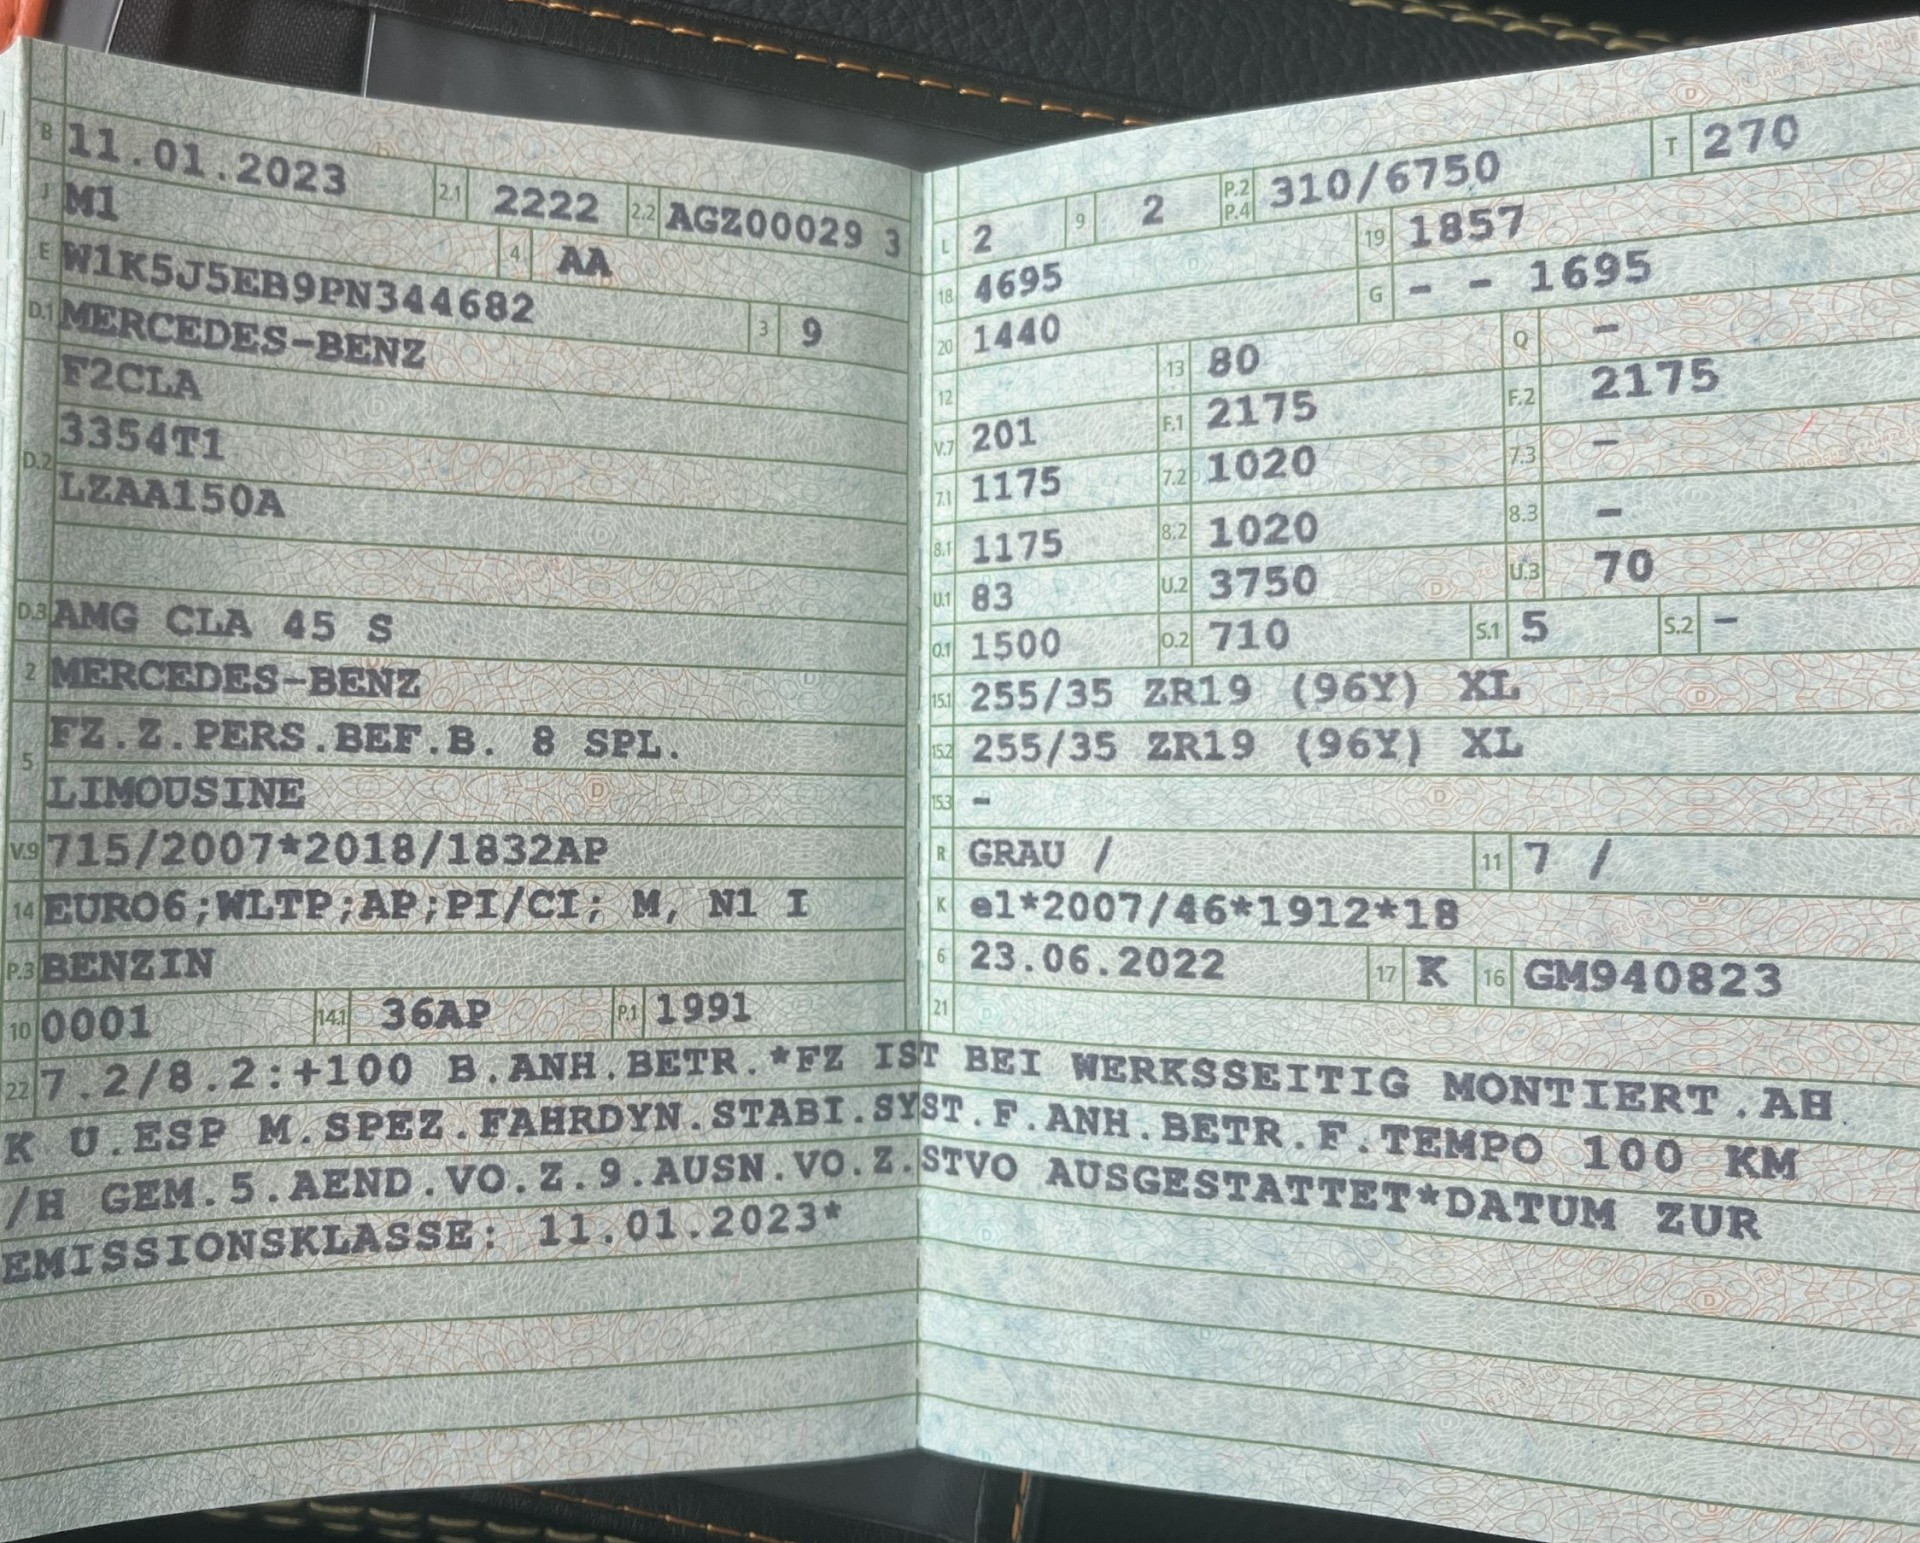 B 11.01.2023 2.1 2222 2.2 AGZ00029 3
J M1 4 AA
E W1K5J5EB9PN344682 3 9
D.1 MERCEDES-BENZ
F2CLA
D.2 3354T1
LZAA150A
D.3 AMG CLA 45 S
2 MERCEDES-BENZ
5 FZ.Z.PERS.BEF.B. 8 SPL.
LIMOUSINE
V.9 715/2007*2018/1832AP
14 EURO6;WLTP;AP;PI/CI; M, N1 I
P.3 BENZIN
10 0001 14.1 36AP P.1 1991
L 2 9 2 P.2 P.4 310/6750 T 270
18 4695 19 1857
20 1440 G - - 1695
12 13 80 Q -
V.7 201 F.1 2175 F.2 2175
7.1 1175 7.2 1020 7.3 -
8.1 1175 8.2 1020 8.3 -
U.1 83 U.2 3750 U.3 70
O.1 1500 O.2 710 S.1 5 S.2 -
15.1 255/35 ZR19 (96Y) XL
15.2 255/35 ZR19 (96Y) XL
15.3 -
R GRAU / 11 7 /
K e1*2007/46*1912*18
6 23.06.2022 17 K 16 GM940823
21
22 7.2/8.2:+100 B.ANH.BETR.*FZ IST BEI WERKSSEITIG MONTIERT.AH
K U.ESP M.SPEZ.FAHRDYN.STABI.SYST.F.ANH.BETR.F.TEMPO 100 KM
/H GEM.5.AEND.VO.Z.9.AUSN.VO.Z.STVO AUSGESTATTET*DATUM ZUR
EMISSIONSKLASSE: 11.01.2023*